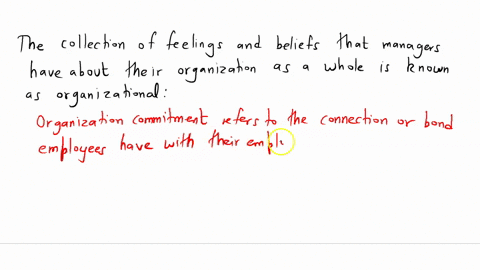 The collection of feelings and beliefs that managers
have about their organization as a whole is known
as organizational:
Organization commitment refers to the connection or bond
employees have with their empl